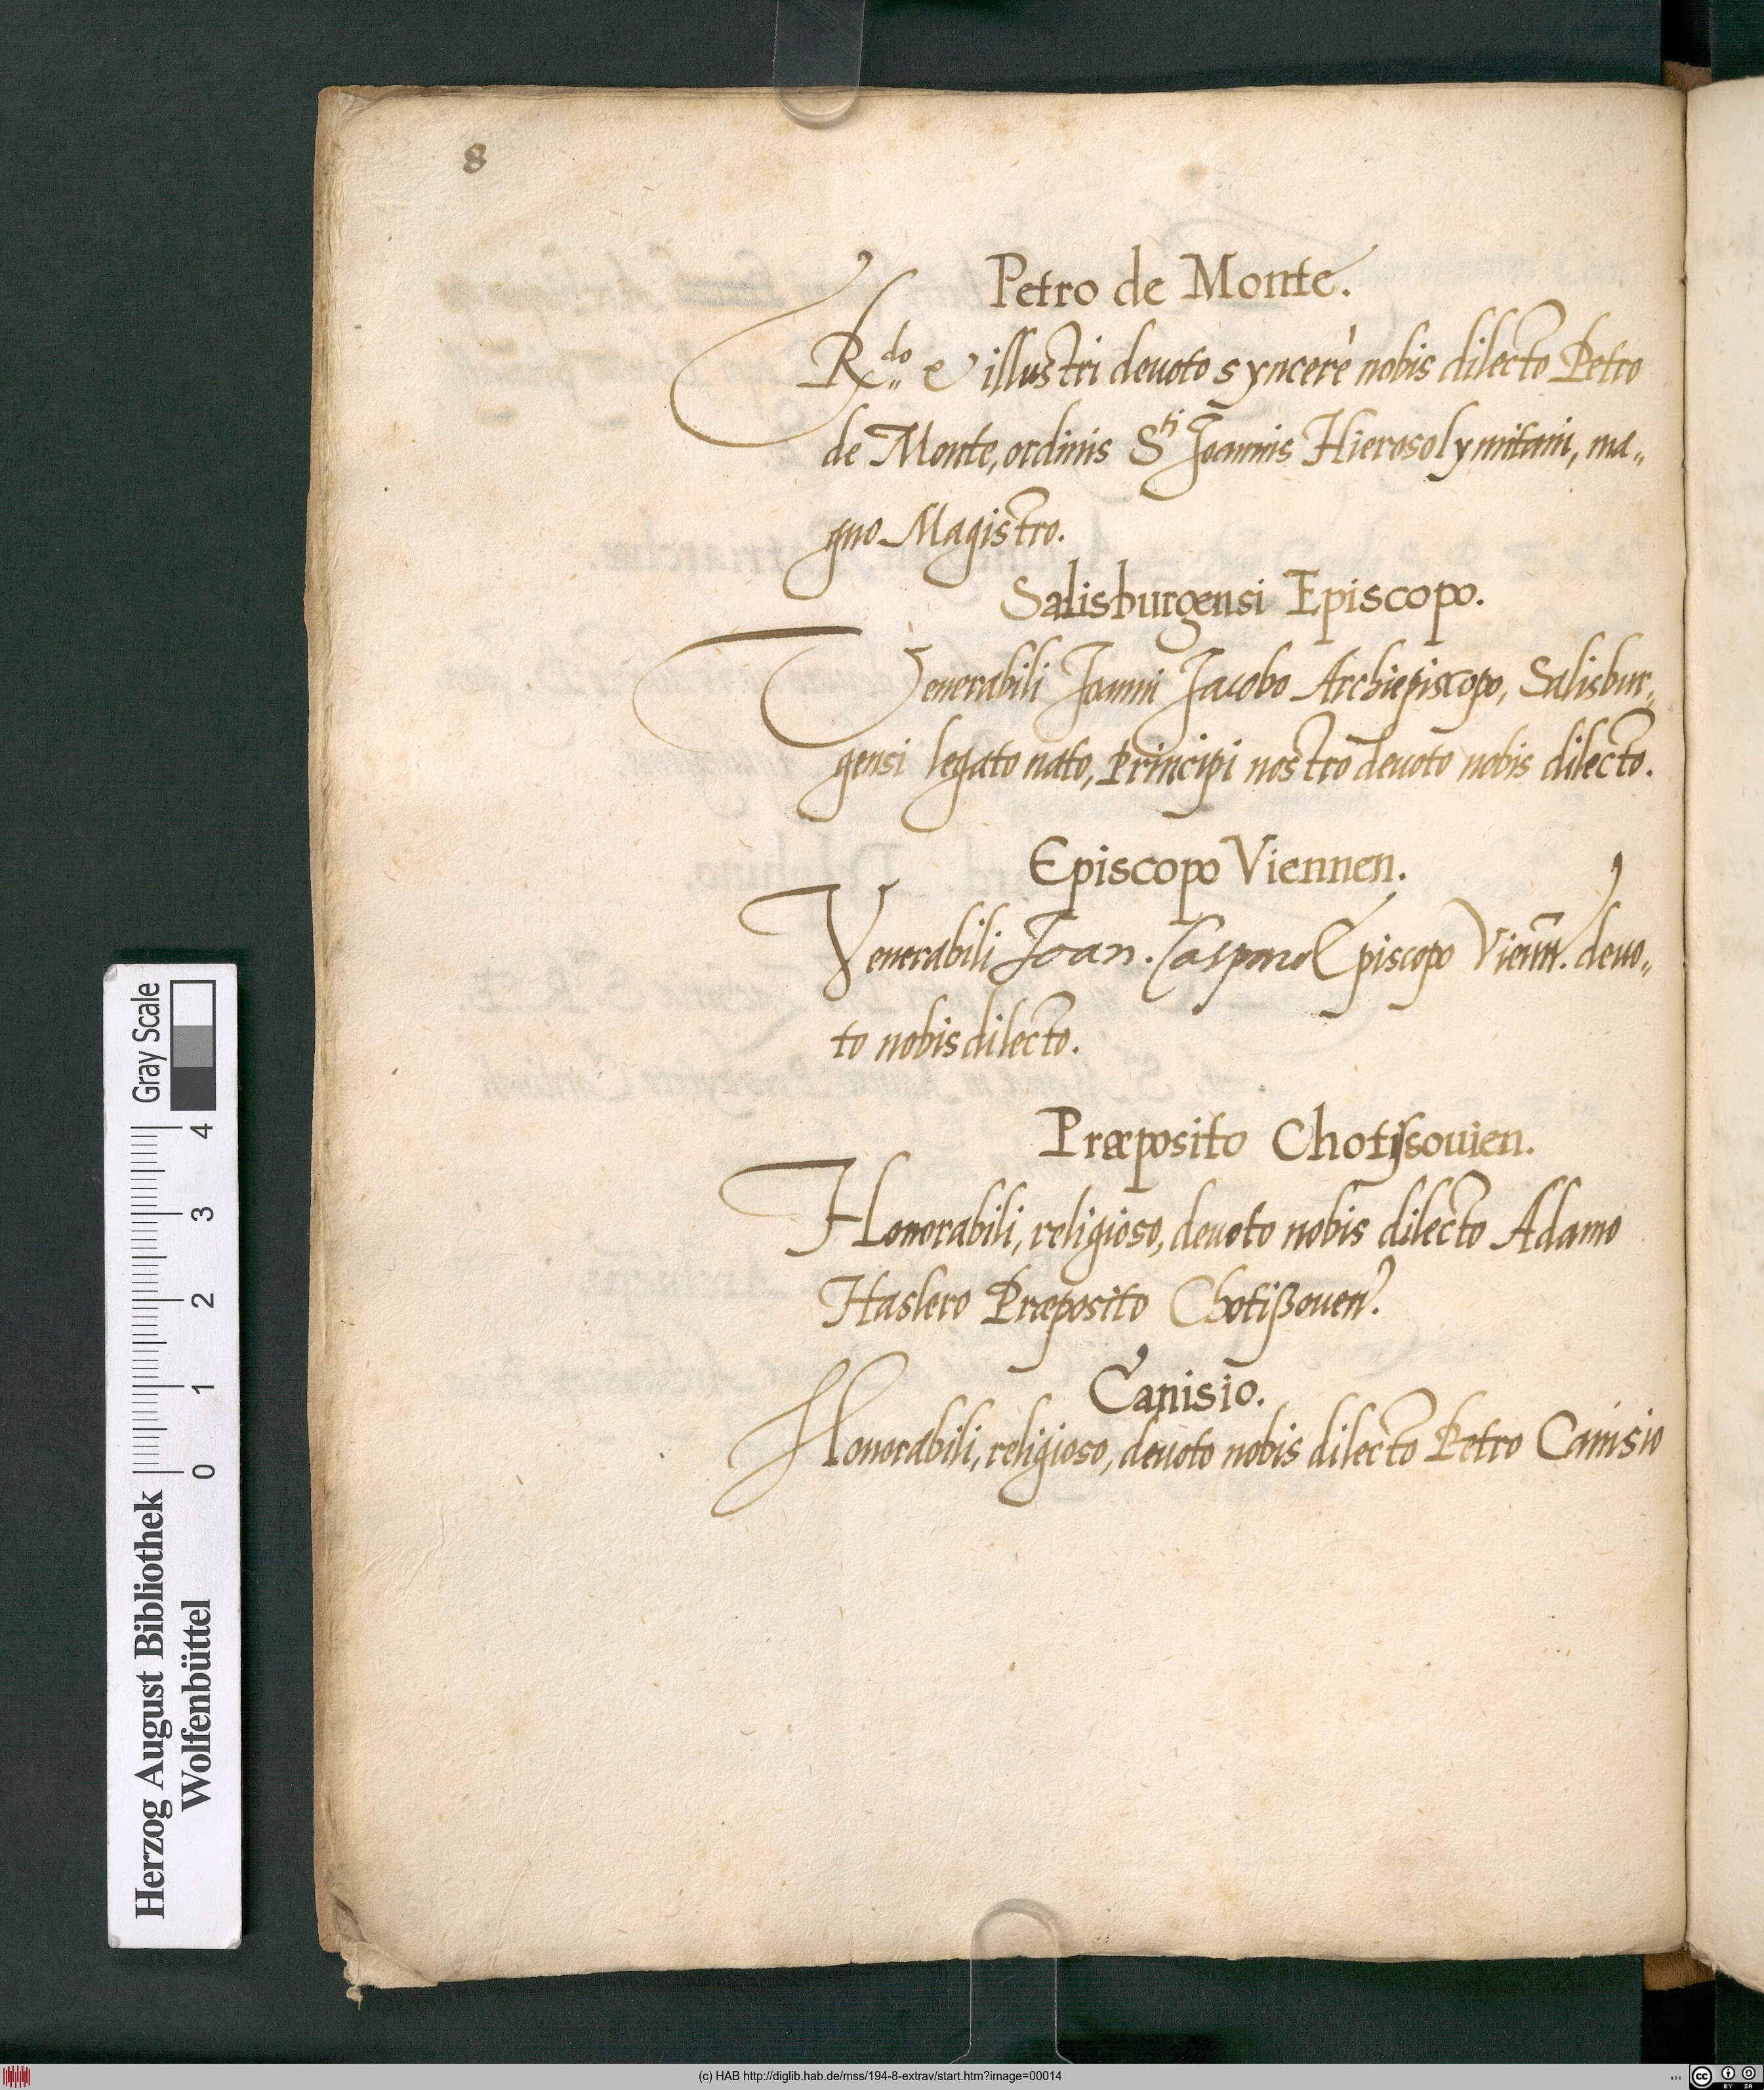 8
Petro de Monte.
R.do & illustri deuoto syncerè nobis dilecto Petro
de Monte, ordinis Sti Joannis Hierosolymitani, ma„
gno Magistro.
Salisburgensi Episcopo.
Venerabili Joanni Jacobo Archiepiscopo, Salisbur„
gensi legato nato, Principi nostro deuoto nobis dilecto.
Episcopo Viennen.
Venerabili Joan. Casparo Episcopo Vienn̄. deuo„
to nobis dilecto.
Præposito Chotissouien.
Honorabili, religioso, deuoto nobis dilecto Adamo
Haslero Præposito Chotißouen.
Canisio.
Honorabili, religioso, deuoto nobis dilecto Petro Canisio
Herzog August Bibliothek
Wolfenbüttel
0 1 2 3 4
Gray Scale
(c) HAB http://diglib.hab.de/mss/194-8-extrav/start.htm?image=00014
cc BY SA